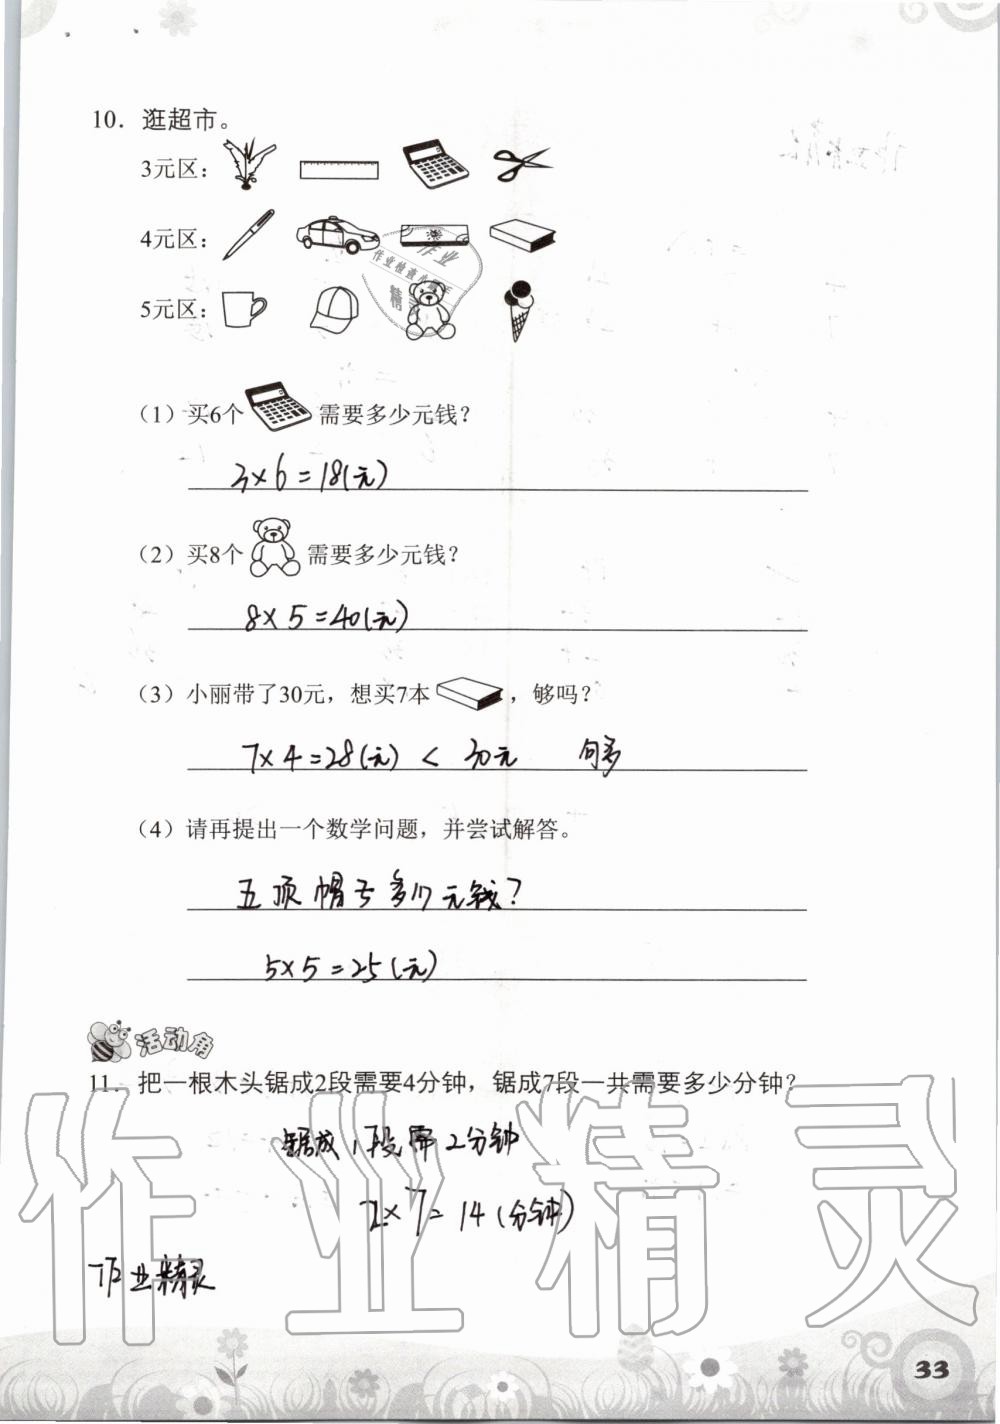 10. 逛超市。
3元区：
4元区：
5元区：
作业
作业检查小助手
精灵
（1）买6个 需要多少元钱？
3×6=18(元)
（2）买8个 需要多少元钱？
8×5=40(元)
（3）小丽带了30元，想买7本 ，够吗？
7×4=28(元) < 30元 够
（4）请再提出一个数学问题，并尝试解答。
五顶帽子多少元钱？
5×5=25(元)
活动角
11. 把一根木头锯成2段需要4分钟，锯成7段一共需要多少分钟？
锯成1段需2分钟
2×7=14(分钟)
作业精灵
作业精灵
33